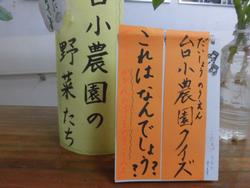 だいしょう のうえん
台小農園クイズ
これはなんでしょう??
台小農園の
野菜たち